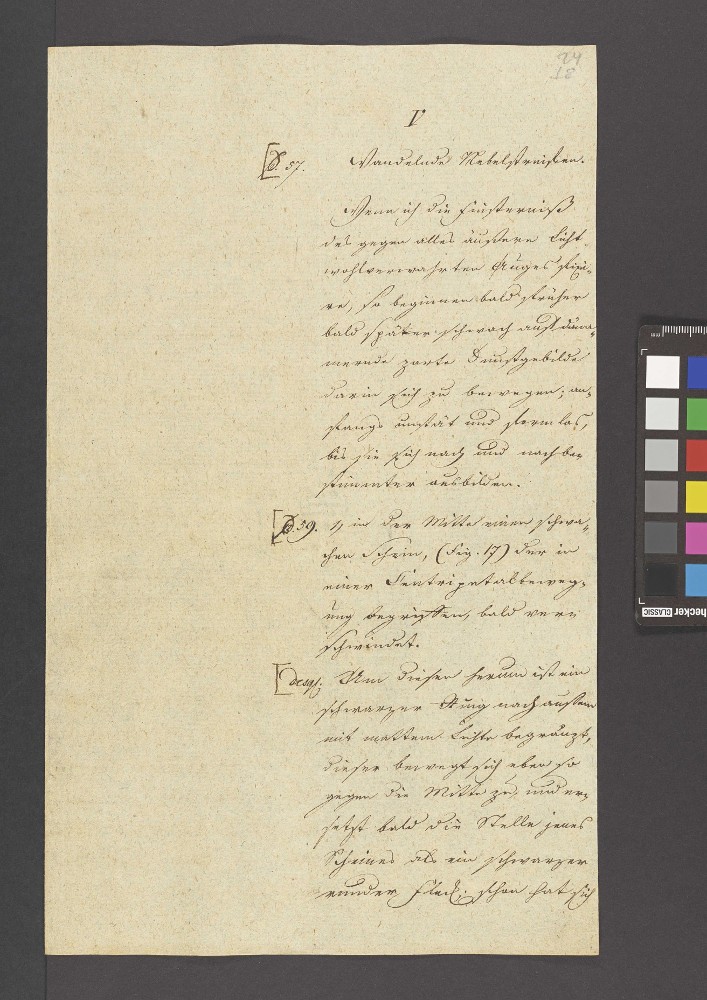 24
18
V
[S. 57. Wandelnde Nebelstreifen.
Wenn ich die Finsterniß
des gegen alles äußere Licht
wohlverwahrten Auges fixi-
re, so beginnen bald früher
bald später schwach aufdäm-
mernde zarte Dunstgebilde
darin sich zu bewegen; an-
fangs unstät und formlos,
bis sie sich nach und nach be
stimmter ausbilden.
[S. 59. 1, in der Mitte einen schwa-
chen Schein, (Fig. 17) der in
einer Centripetalbeweg-
ung begriffen, bald ver
schwindet.
[desgl. Um diesen herum ist ein
schwarzer Ring nach außen
mit mattem Lichte begränzt,
dieser bewegt sich eben so
gegen die Mitte zu, und er-
setzt bald die Stelle jenes
Scheines als ein schwarzer
runder Fleck; schon hat sich
checker CLASSIC